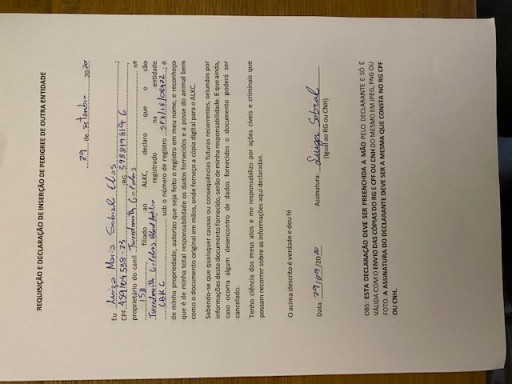 REQUISIÇÃO E DECLARAÇÃO DE INSERÇÃO DE PEDIGREE DE OUTRA ENTIDADE
29 de setembro 2020
Eu Maria Sobral
CPF RG
proprietário do canil nº
158 filiado ao ALKC, declaro que o cão
registrado na entidade
CBKC sob o número de registro ; é
de minha propriedade, autorizo que seja feito o registro em meu nome, e reconheço
que é de minha total responsabilidade os dados fornecidos e a posse do animal bem
como o documento original em mãos, onde forneço a cópia digital para o ALKC.
Sabendo-se que quaisquer causas ou consequências futuras recorrentes, oriundos por
informações deste documento fornecido, serão de minha responsabilidade. E que ainda,
caso ocorra algum desencontro de dados fornecidos o documento poderá ser
cancelado.
Tenho ciência dos meus atos e me responsabilizo por ações cíveis e criminais que
possam recorrer sobre as informações aqui declaradas.
O acima descrito é verdade e dou fé
Data: 29/09/2020 Assinatura: Sobral
(Igual ao RG ou CNH)
OBS: ESTA DECLARAÇÃO DEVE SER PREENCHIDA A MÃO PELO DECLARANTE E SÓ É
VÁLIDA COM O ENVIO DAS CÓPIAS DO RG E CPF OU CNH DO MESMO EM JPEG, PNG OU
FOTO. A ASSINATURA DO DECLARANTE DEVE SER A MESMA QUE CONSTA NO RG CPF
OU CNH.